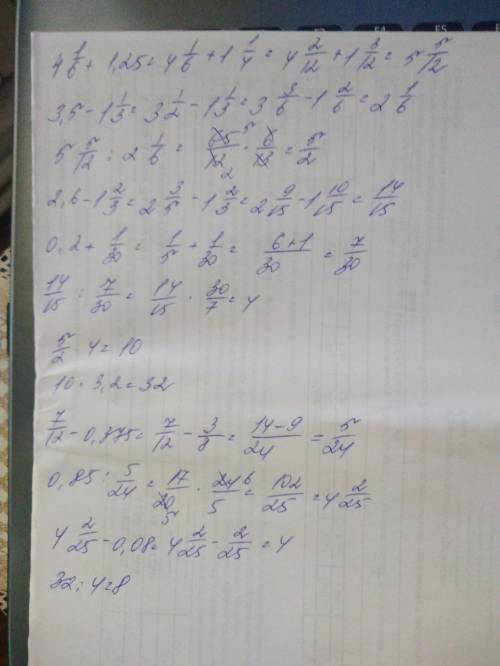 4 1/6 + 1,25 = 4 1/6 + 1 1/4 = 4 2/12 + 1 3/12 = 5 5/12
3,5 - 1 1/3 = 3 1/2 - 1 1/3 = 3 3/6 - 1 2/6 = 2 1/6
5 5/12 : 2 1/6 = 65/12 · 6/13 = 5/2
2,6 - 1 2/3 = 2 3/5 - 1 2/3 = 2 9/15 - 1 10/15 = 14/15
0,2 + 1/30 = 1/5 + 1/30 = 6+1/30 = 7/30
14/15 : 7/30 = 14/15 · 30/7 = 4
5/2 · 4 = 10
10 · 3,2 = 32
7/12 - 0,375 = 7/12 - 3/8 = 14-9/24 = 5/24
0,85 : 5/24 = 17/20 · 24/5 = 102/25 = 4 2/25
4 2/25 - 0,08 = 4 2/25 - 2/25 = 4
32 : 4 = 8